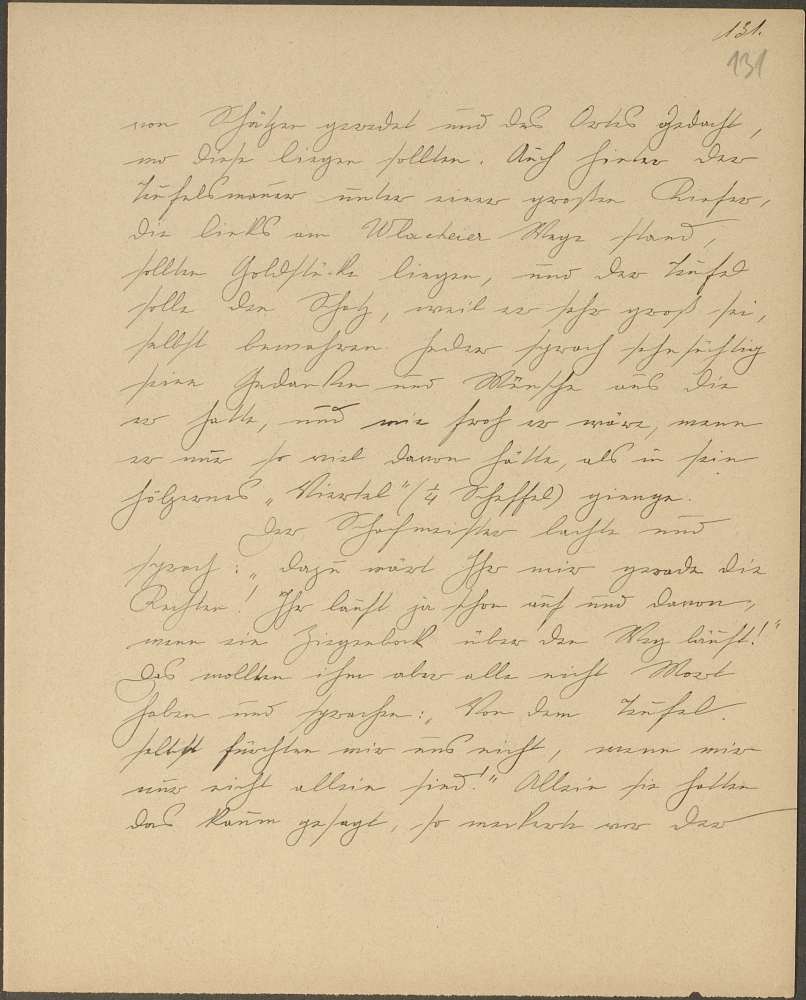 131.
131
von Schätzen geredet und des Ortes gedacht,
wo diese liegen sollten. Auch hinter der
Teufelsmauer unter einer großen Kiefer,
die links am Wlacheier Wege stand,
sollten Goldstücke liegen, und der Teufel
solle den Schatz, weil er sehr groß sei,
selbst bewahren. Jeder sprach sehnsüchtig
seine Gedanken und Wünsche aus die
er hatte, und wie froh er wäre, wenn
er nur so viel davon hätte, als in sein
hölzernes „Viertel" (¼ Scheffel) gienge.
Der Schafmeister lachte und
sprach: „Dazu wärt Ihr mir gerade die
Rechten! Ihr lauft ja schon auf und davon,
wenn ein Ziegenbock über den Weg läuft!"
Das wollten ihm aber alle nicht Wort
haben und sprachen: „Von dem Teufel
selbst fürchten wir uns nicht, wenn wir
nur nicht allein sind!" Allein sie hatten
das kaum gesagt, so meckerte vor der